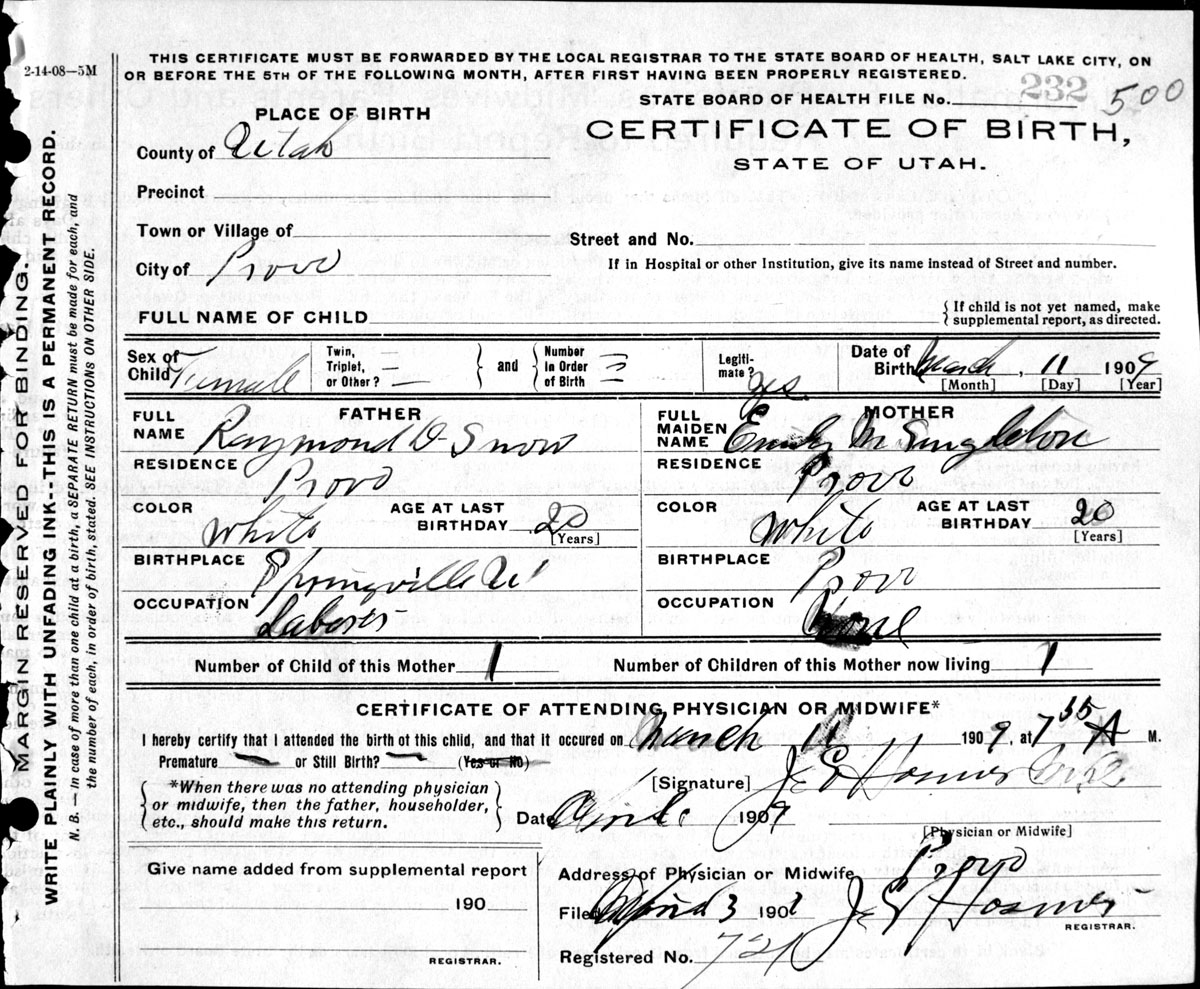 2-14-08—5M
THIS CERTIFICATE MUST BE FORWARDED BY THE LOCAL REGISTRAR TO THE STATE BOARD OF HEALTH, SALT LAKE CITY, ON
OR BEFORE THE 5TH OF THE FOLLOWING MONTH, AFTER FIRST HAVING BEEN PROPERLY REGISTERED.
STATE BOARD OF HEALTH FILE No. 232 500
PLACE OF BIRTH
CERTIFICATE OF BIRTH,
STATE OF UTAH.
County of Utah
Precinct
Town or Village of
Street and No.
City of Provo
If in Hospital or other Institution, give its name instead of Street and number.
FULL NAME OF CHILD
{ If child is not yet named, make
supplemental report, as directed.
Sex of
Child
Twin,
Triplet, —
or Other? —
} and {
Number
in Order
of Birth
Legiti-
mate? Yes
Date of
Birth March, 11 1909
[Month] [Day] [Year]
FATHER
FULL
NAME Raymond D Snow
RESIDENCE
Provo
COLOR
White
AGE AT LAST
BIRTHDAY 20
[Years]
BIRTHPLACE
Springville Ut
OCCUPATION
Laborer
MOTHER
FULL
MAIDEN
NAME Emily M Singleton
RESIDENCE
Provo
COLOR
White
AGE AT LAST
BIRTHDAY 20
[Years]
BIRTHPLACE
Provo
OCCUPATION
Number of Child of this Mother 1
Number of Children of this Mother now living 1
CERTIFICATE OF ATTENDING PHYSICIAN OR MIDWIFE*
I hereby certify that I attended the birth of this child, and that it occured on March 11 1909, at 7 35 A M.
Premature — or Still Birth? — (Yes or No)
[Signature] J E Hosmer
{ *When there was no attending physician
or midwife, then the father, householder,
etc., should make this return. }
Date 1909
[Physician or Midwife]
Give name added from supplemental report
190
REGISTRAR.
Address of Physician or Midwife Provo
Filed April 3 1909 J E Hosmer
REGISTRAR.
Registered No. 721
MARGIN RESERVED FOR BINDING.
WRITE PLAINLY WITH UNFADING INK--THIS IS A PERMANENT RECORD.
N. B.—In case of more than one child at a birth, a SEPARATE RETURN must be made for each, and
the number of each, in order of birth, stated. SEE INSTRUCTIONS ON OTHER SIDE.